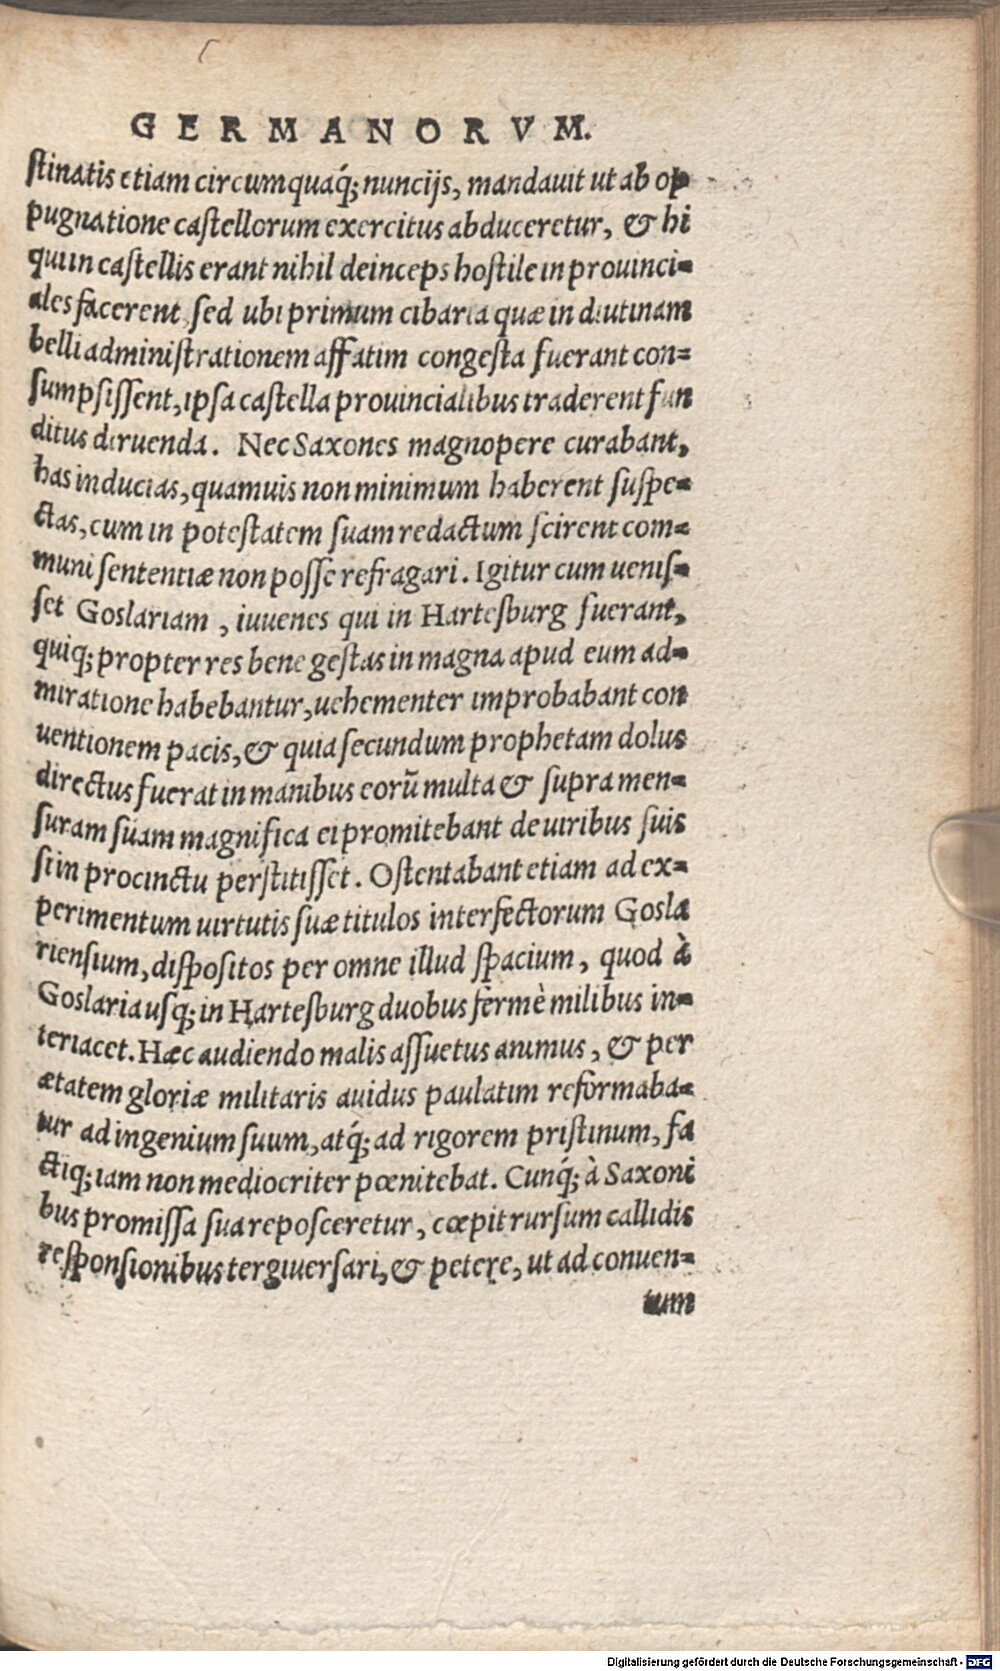 GERMANORVM.
stinatis etiam circumquaq́; nuncijs, mandauit ut ab op
pugnatione castellorum exercitus abduceretur, & hi
qui in castellis erant nihil deinceps hostile in prouinci=
ales facerent, sed ubi primum cibaria quæ in diutinam
belli administrationem affatim congesta fuerant con=
sumpsissent, ipsa castella prouincialibus traderent fun
ditus diruenda. Nec Saxones magnopere curabant,
has inducias, quamuis non minimum haberent suspe=
ctas, cum in potestatem suam redactum scirent com=
muni sententiæ non posse refragari. Igitur cum uenis=
set Goslariam, iuuenes qui in Hartesburg fuerant,
quiq; propter res bene gestas in magna apud eum ad=
miratione habebantur, uehementer improbabant con
uentionem pacis, & quia secundum prophetam dolus
directus fuerat in manibus eorũ multa & supra men=
suram suam magnifica ei promitebant de uiribus suis
si in procinctu perstitisset. Ostentabant etiam ad ex=
perimentum uirtutis suæ titulos interfectorum Gosla
riensium, dispositos per omne illud spacium, quod à
Goslaria usq; in Hartesburg duobus fermè milibus in=
teriacet. Hæc audiendo malis assuetus animus, & per
ætatem gloriæ militaris auidus paulatim reformaba=
tur ad ingenium suum, atq́; ad rigorem pristinum, fa
ctiq; iam non mediocriter pœnitebat. Cunq́; à Saxoni
bus promissa sua reposceretur, cœpit rursum callidis
responsionibus tergiuersari, & petere, ut ad conuen=
tum
Digitalisierung gefördert durch die Deutsche Forschungsgemeinschaft - DFG